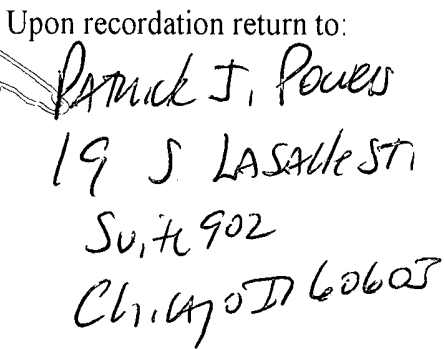 Upon recordation return to:
Patrick J. Powers
19 S LASAlle ST.
Suite 902
Chicago Il 60603